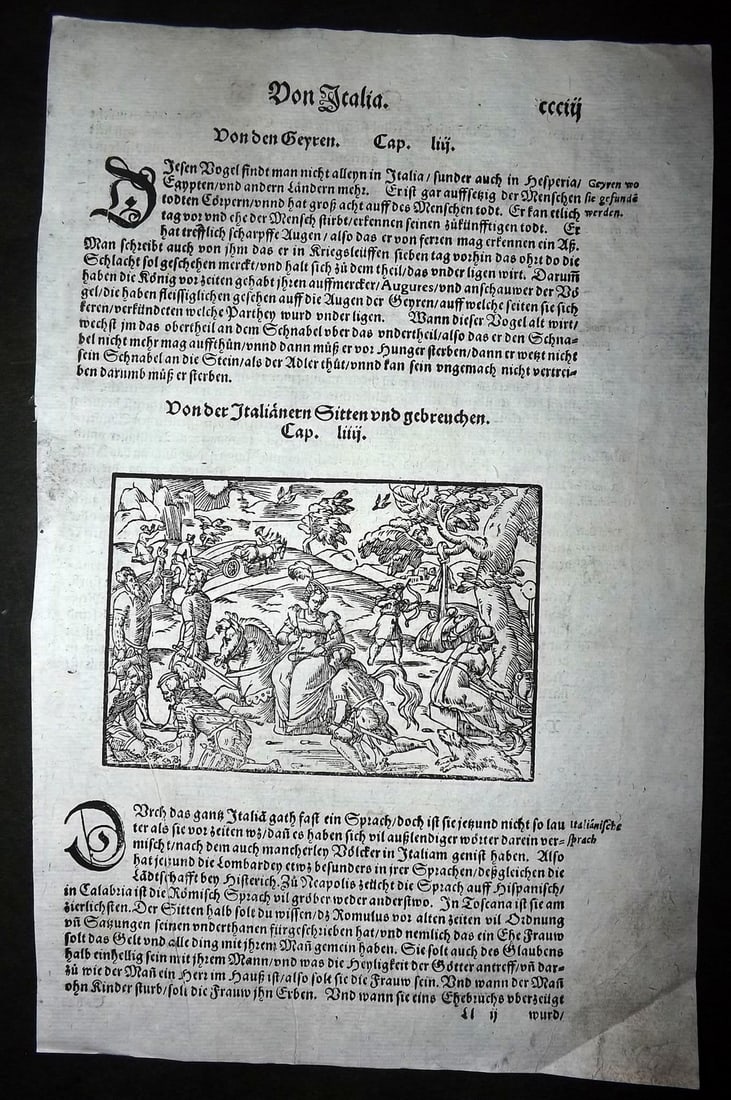 Von Italia.
ccciij
Von den Geyren. Cap. liij.
DIesen Vogel findt man nicht alleyn in Italia/ sunder auch in Hesperia/
Egypten/vnd andern Ländern mehr. Er ist gar auffsetzig der Menschen
todten Cörpern/vnnd hat groß acht auff des Menschen todt. Er kan etlich
tag vor vnd ehe der Mensch stirbt/erkennen seinen zůkünfftigen todt. Er
hat trefflich scharpffe Augen/ also das er von ferren mag erkennen ein Aß.
Man schreibt auch von jhm das er in Kriegsleüffen sieben tag vorhin das ohrt do die
Schlacht sol geschehen merckt/vnd halt sich zů dem theil/das vnder ligen wirt. Darum̃
haben die König vor zeiten gehabt jhren auffmercker/Augures/vnd anschauwer der Vö-
gel/die haben fleissiglichen gesehen auff die Augen der Geyren/auff welche seiten sie sich
keren/verkündeten welche Parthey wurd vnder ligen. Wann dieser Vogel alt wirt/
wechst jm das obertheil an dem Schnabel vber das vndertheil/also das er den Schna-
bel nicht mehr mag auffthůn/vnnd dann můß er vor Hunger sterben/dann er wetzt nicht
sein Schnabel an die Stein/als der Adler thůt/vnnd kan sein vngemach nicht vertrei-
ben darumb můß er sterben.
Geyren wo
sie gefundē
werden.
Von der Italiänern Sitten vnd gebreuchen.
Cap. liiij.
DVrch das gantz Italiā gath fast ein Sprach/doch ist sie jetzund nicht so lau
ter als sie vor zeiten wz/dañ es haben sich vil außlendiger wörter darein ver-
mischt/nach dem auch mancherley Völcker in Italiam genist haben. Also
hat jetzund die Lombardey etwz besonders in jrer Sprachen/deßgleichen die
Lādtschafft bey Histerich. Zů Neapolis zeücht die Sprach auff Hispanisch/
in Calabria ist die Römisch Sprach vil gröber weder anderstwo. In Toscana ist sie am
zierlichsten. Der Sitten halb solt du wissen/dz Romulus vor alten zeiten vil Ordnung
vñ Satzungen seinen vnderthanen fürgeschrieben hat/vnd nemlich das ein Ehe Frauw
solt das Gelt vnd alle ding mit jhrem Mañ gemein haben. Sie solt auch des Glaubens
halb einhellig sein mit jhrem Mann/vnd was die Heyligkeit der Götter antreff/vñ dar-
zů wie der Mañ ein Herr im Hauß ist/also solt sie die Frauw sein. Vnd wann der Mañ
ohn Kinder sturb/solt die Frauw jhn Erben. Vnd wann sie eins Ehebruchs vberzeügt
Italiänische
sprach
Ll ij wurd/